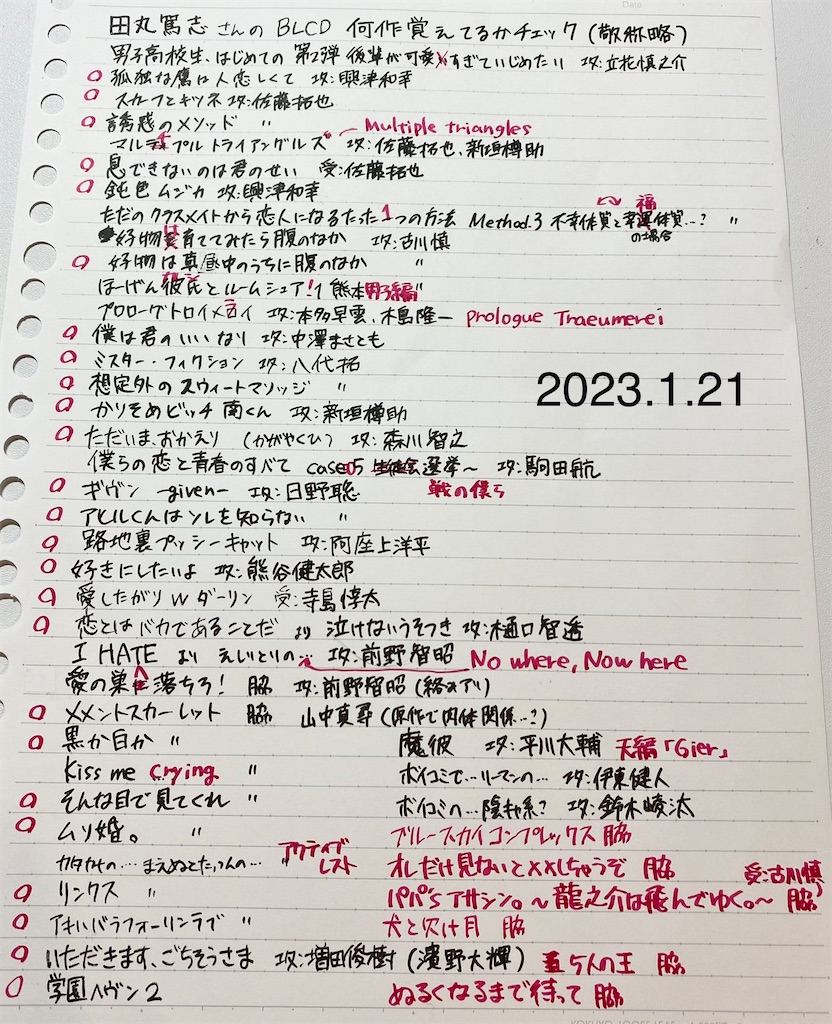 Date
田丸篤志さんのBLCD 何作覚えてるかチェック(敬称略)
男子高校生、はじめての 第2弾 後輩が可愛すぎていじめたい 攻:立花慎之介
孤独な鷹は人恋しくて 攻:興津和幸
スカーフとキツネ 攻:佐藤拓也
誘惑のメソッド 〃
Multiple triangles
マルチプルトライアングルズ 攻:佐藤拓也、新垣樽助
息できないのは君のせい 受:佐藤拓也
鈍色ムジカ 攻:興津和幸
福
ただのクラスメイトから恋人になるたった1つの方法 Method.3 不幸体質と幸運体質…? 〃
の場合
好物は育ててみたら腹のなか 攻:古川慎
好物は真昼中のうちに腹のなか 〃
ほーげん彼氏とルームシェア!1 熊本男子編 〃
カレシ
プロローグトロイメライ 攻:本多早雲、木島隆一 prologue Traeumerei
僕は君のいいなり 攻:中澤まさとも
ミスター・フィクション 攻:八代拓
想定外のスウィートマソッジ 〃
2023.1.21
かりそめビッチ南くん 攻:新垣樽助
ただいま、おかえり (かがやくひ) 攻:森川智之
僕らの恋と青春のすべて case05 生徒会選挙〜 攻:駒田航
戦の僕ら
ギヴン -given- 攻:日野聡
アヒルくんはソレを知らない 〃
路地裏プッシーキャット 攻:阿座上洋平
好きにしたいよ 攻:熊谷健太郎
愛したがりWダーリン 受:寺島惇太
恋とはバカであることだ より 泣けないうそつき 攻:樋口智透
I HATE より えしいとりの… 攻:前野智昭 No where, Now here
愛の巣へ落ちろ! 脇 攻:前野智昭(絡みアリ)
メメントスカーレット 脇 山中真尋(原作で肉体関係…?)
黒か白か 〃
魔彼 攻:平川大輔 天編「Gier」
Kiss me crying. 〃
ボイコミで…リーマンの… 攻:伊東健人
そんな目で見てくれ 〃
ボイコミの…陰キャ系? 攻:鈴木崚汰
ムソ婚。 〃
ブルースカイコンプレックス 脇
カタカナの…まえぬとたっつんの… 〃 アクティブレスト
オレだけ見ないと××しちゃうぞ 脇 受:古川慎
リンクス 〃
パパ'sアサシン。〜龍之介は飛んでゆく。〜 脇
アキハバラフォーリンラブ 〃
犬と欠け月 脇
いただきます、ごちそうさま 攻:増田俊樹(濱野大輝)
5人の王 脇
学園ヘヴン2
ぬるくなるまで待って 脇